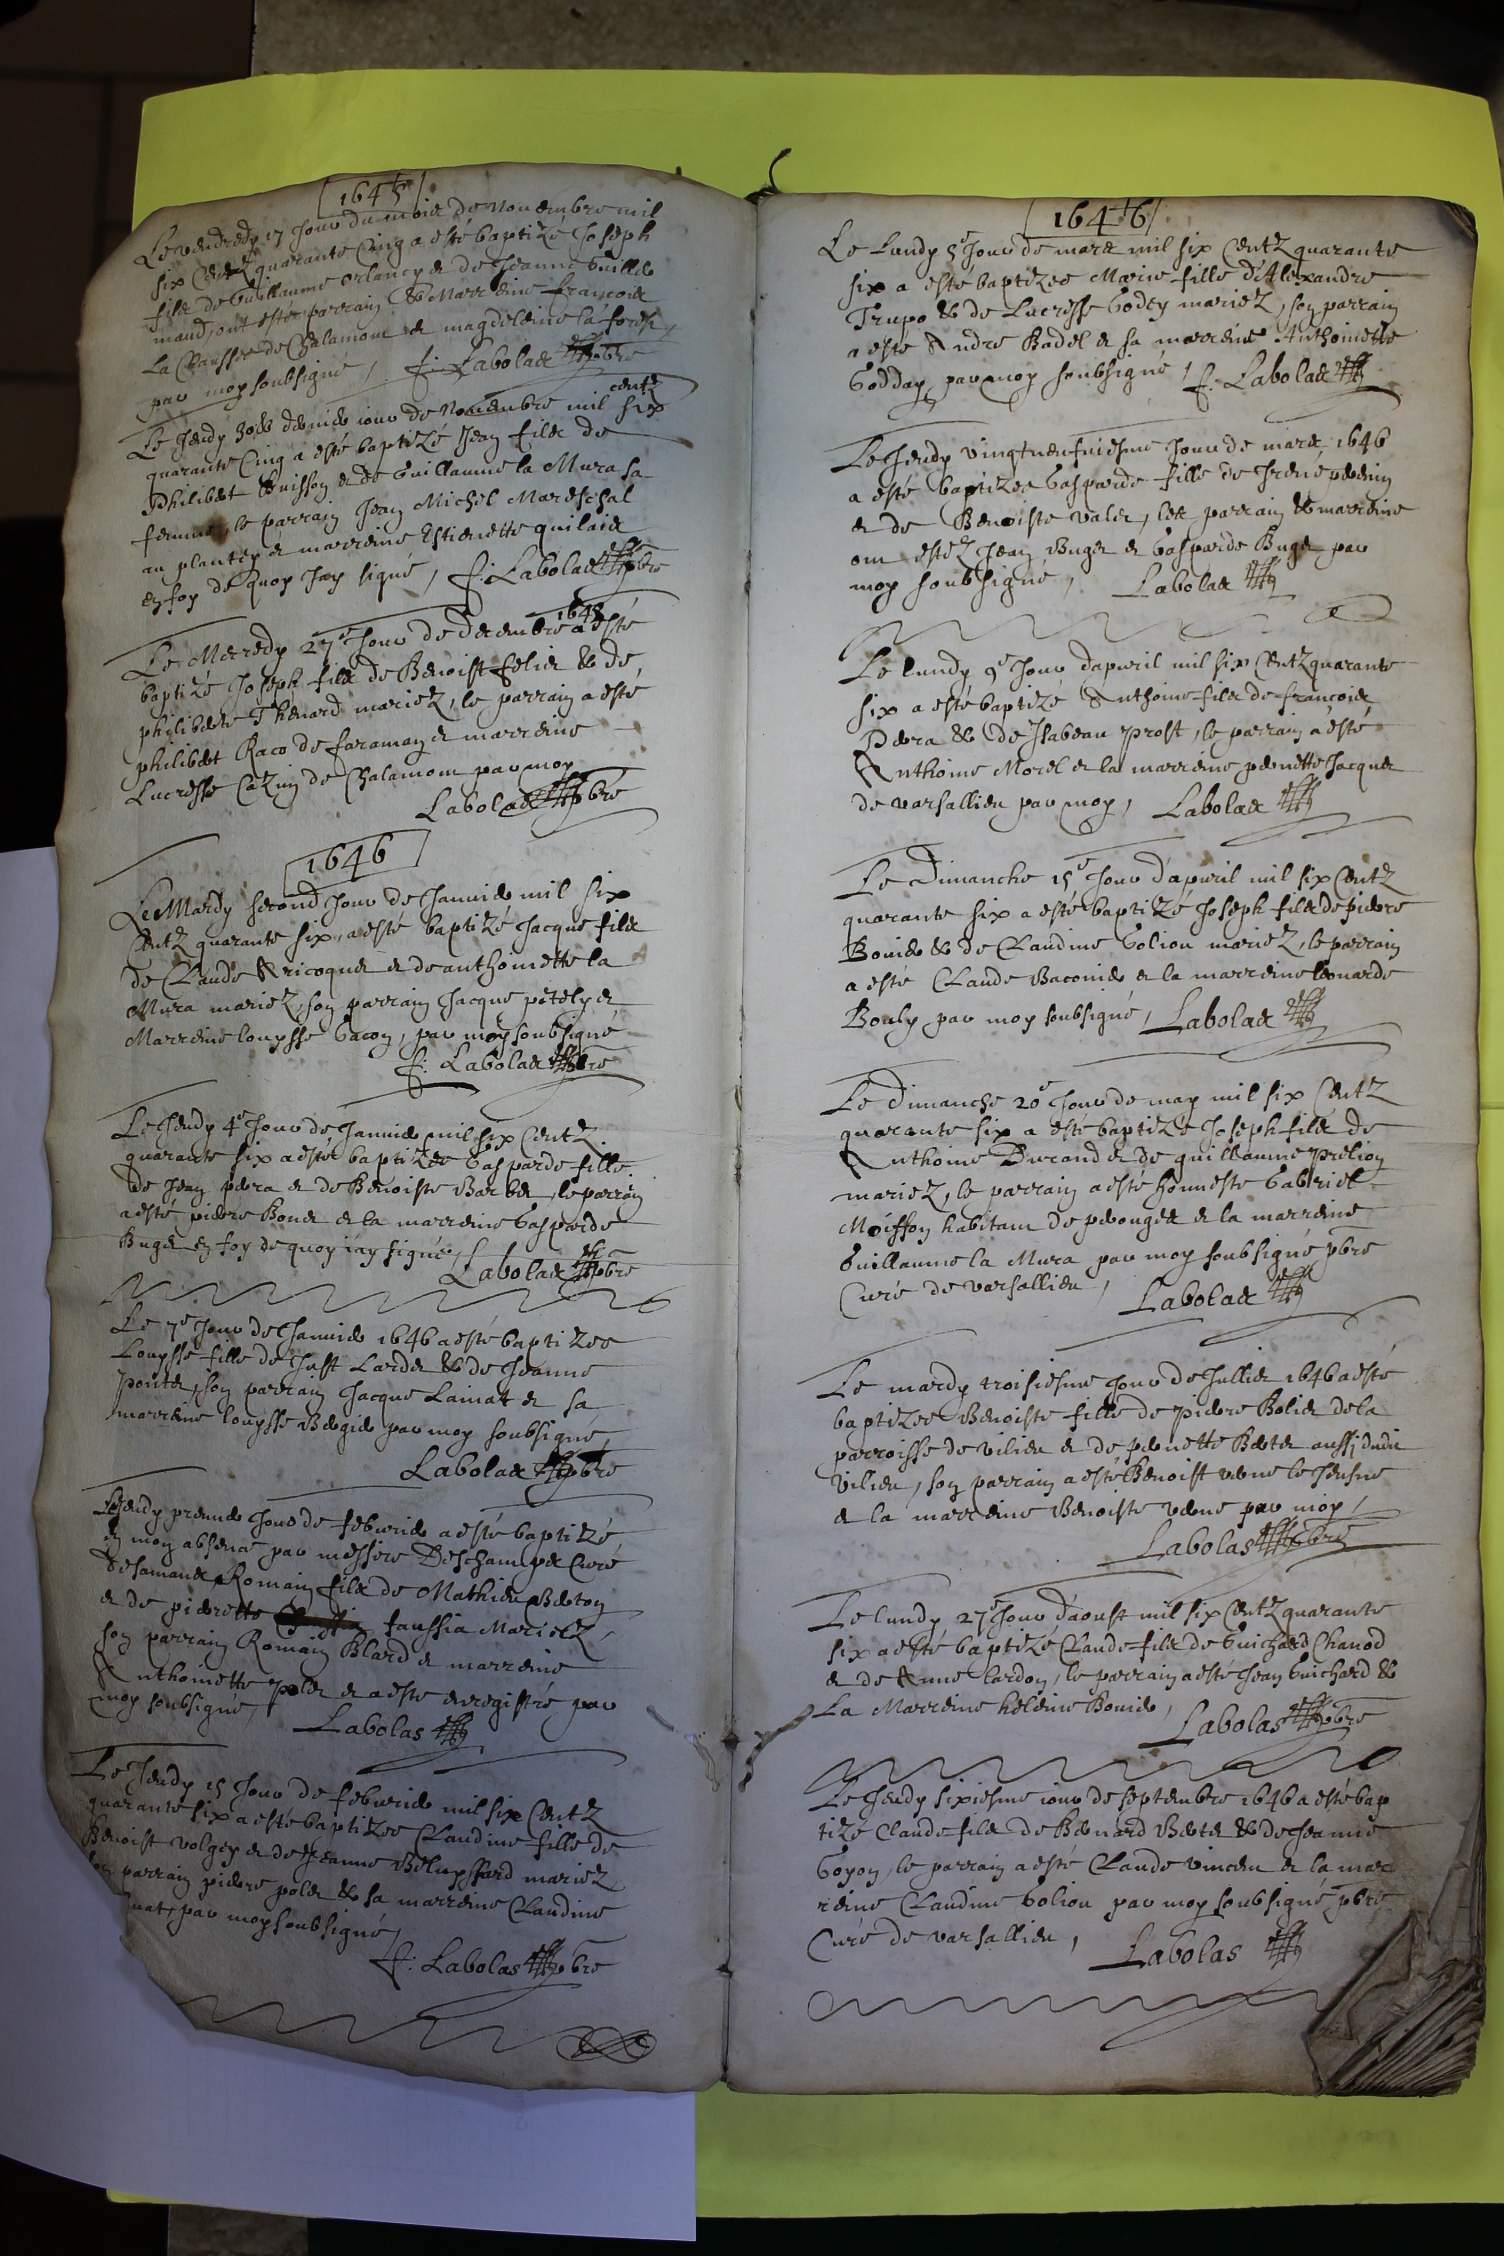 1645
Le vendredy 17 Jour du mois de Novembre mil
six Centz quarante Cinq a esté baptizé Joseph
filz de Guillaume orlancy et de Jeanne Guille
maud, ont estés parrain & Marreine françois
La Chaussee de Chalamont et magdeleine la forest,
par moy soubsigné, f: Labolas pbre
Le Jeudy 30e dernier iour de Novembre mil six centz
quarante Cinq a esté baptizé Jean filz de
Philibert Buisson et de Guillauma la Mura sa
femme, le parrain Jean Michel Mareschal
au plantey et marreine Estienette quilais
en foy de quoy Jay signé, f: Labolas pbre
Le Mecredy 27e Jour de decembre 1645 a esté
baptizé Joseph filz de Benoist felix & de
philiberte Thenard mariez, le parrain a esté
philibert Raco de faraman et marreine
Lucresse Cazin de Chalamont par moy
Labolas pbre
1646
Le Mardy second Jour de Janvier mil six
Centz quarante six, a esté baptizé Jacque filz
de Claude Aricoques et de anthoinette la
Mura mariez, son parrain Jacque petely et
Marreine louysse Gacon, par moy soubsigné
f: Labolas pbre
Le Jeudy 4e Jour de Janvier mil six Centz
quarante six a esté baptizée Gasparde fille
de Jean pera et de Benoiste Barbet, le parrain
a esté pierre Bonet et la marreine Gasparde
Buget en foy de quoy iay signé,
Labolas pbre
Le 7e Jour de Janvier 1646 a esté baptizee
Louysse fille de Just Lardet & de Jeanne
pontet, son parrain Jacque Lainat et sa
marreine louysse Bergier par moy soubsigné
Labolas pbre
Le Jeudy premier Jour de febvrier a esté baptizé
en mon absence par messire Deschamps Curé
de samans Romain filz de Mathieu Berton
et de pierrette faussia Mariez,
son parrain Romain Blard et marreine
Anthoinette polet et a esté enregistré par
moy soubsigné,
Labolas
Le Jeudy 15 Jour de febvrier mil six Centz
quarante six a esté baptizee Claudine fille de
Benoist volgey et de Jeanne Beluyssard mariez
parrain pierre polet & sa marreine Claudine
par moy soubsigné,
f: Labolas pbre
1646
Le Lundy 5e Jour de mars mil six Centz quarante
six a esté baptizee Marie fille d'Allexandre
Trupo & de Lucresse Godey mariez, son parrain
a esté Andre Badel et sa marreine Anthoinette
Godday, par moy soubsigné, f: Labolas
Le Jeudy vingtneufiesme Jour de mars 1646
a esté baptizee Gasparde fille de Irené perrin
et de Benoiste valet, les parrain & marreine
ont estez Jean Buget et Gasparde Buget par
moy soubsigné, Labolas
Le lundy 9e Jour dapvril mil six Centz quarante
six a esté baptizé Anthoine filz de françois
Pera & de Isabeau Prost, le parrain a esté
Anthoine Morel et la marreine pernette Jacquet
de varsallieu par moy, Labolas
Le Dimanche 15e Jour d'apvril mil six Centz
quarante six a esté baptizé Joseph filz de pierre
Bonier & de Claudine Goliou mariez, le parrain
a esté Claude Baconier et la marreine leonarde
Bouly par moy soubsigné, Labolas
Le Dimanche 20e Jour de may mil six Centz
quarante six a esté baptizé Joseph filz de
Anthoine Durand et de guillauma prelion
mariez, le parrain a esté honneste Gabriel
Moisson habitant de perouges et la marreine
Guillauma la Mura par moy soubsigné pbre
Curé de varsallieu, Labolas
Le mardy troisiesme Jour de Jullier 1646 a esté
baptizee Benoiste fille de pierre Bolier de la
parroisse de vilieu et de pernette Bertet aussi dudit
Vilieu, son parrain a esté Benoist verne le Jeusne
et la marreine Benoiste verne par moy,
Labolas pbre
Le lundy 27e Jour d'aoust mil six Centz quarante
six a esté baptizé Claude filz de Guichard Chanod
et de Anne lardon, le parrain a esté Jean Guichard &
La Marreine heleine Bonier, Labolas pbre
Le Jeudy sixiesme iour de septembre 1646 a esté bap
tizé Claude filz de Bernard Bertet & de Jeanne
Goyon, le parrain a esté Claude vincent et la mar
reine Claudine Goliou par moy soubsigné pbre
Curé de varsallieu, Labolas